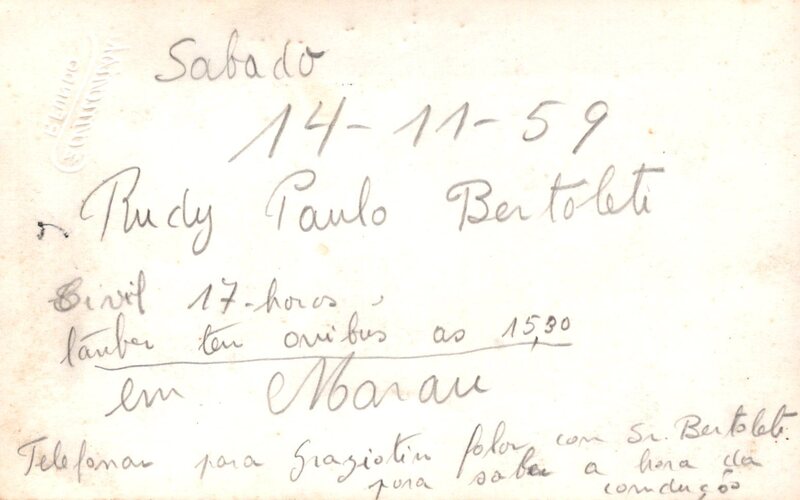 Sabado
14-11-59
Rudy Paulo Bertoleti
Civil 17-horas,
tãmber ten onibus as 15,30
em Marau
Telefonar para Graziotin falar com Sr. Bertoleti
para saber a hora da
condução